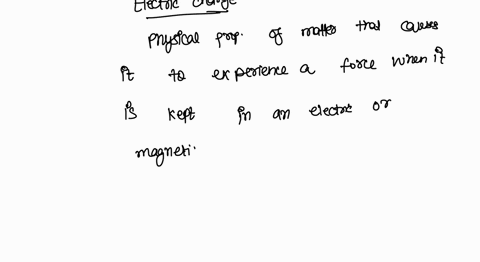 Electric charge
Physical prop. of matter that causes
it to experience a force when it
is kept in an electric or
magneti.